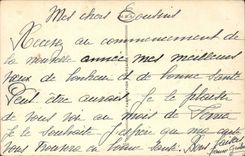 Mes chers Cousins
Recevez au commencement de
la nouvelle année mes meilleurs
vœux de bonheur et de bonne santé
Peut être aurais je le plaisir
de vous voir au mois de
je le souhaite j'espère que ma carte
vous trouvera en bonne santé. Bons baisers